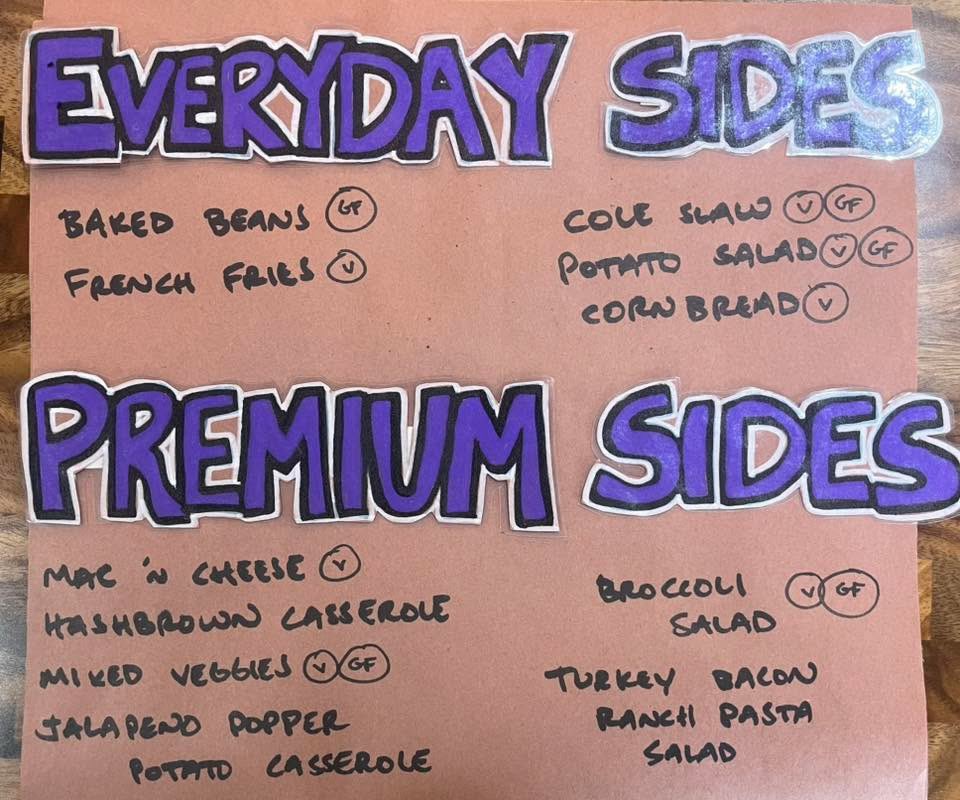 EVERYDAY SIDES
BAKED BEANS GF
FRENCH FRIES V
COLE SLAW V GF
POTATO SALAD V GF
CORNBREAD V
PREMIUM SIDES
MAC 'N CHEESE V
HASHBROWN CASSEROLE
MIXED VEGGIES V GF
JALAPENO POPPER
POTATO CASSEROLE
BROCCOLI V GF
SALAD
TURKEY BACON
RANCH PASTA
SALAD